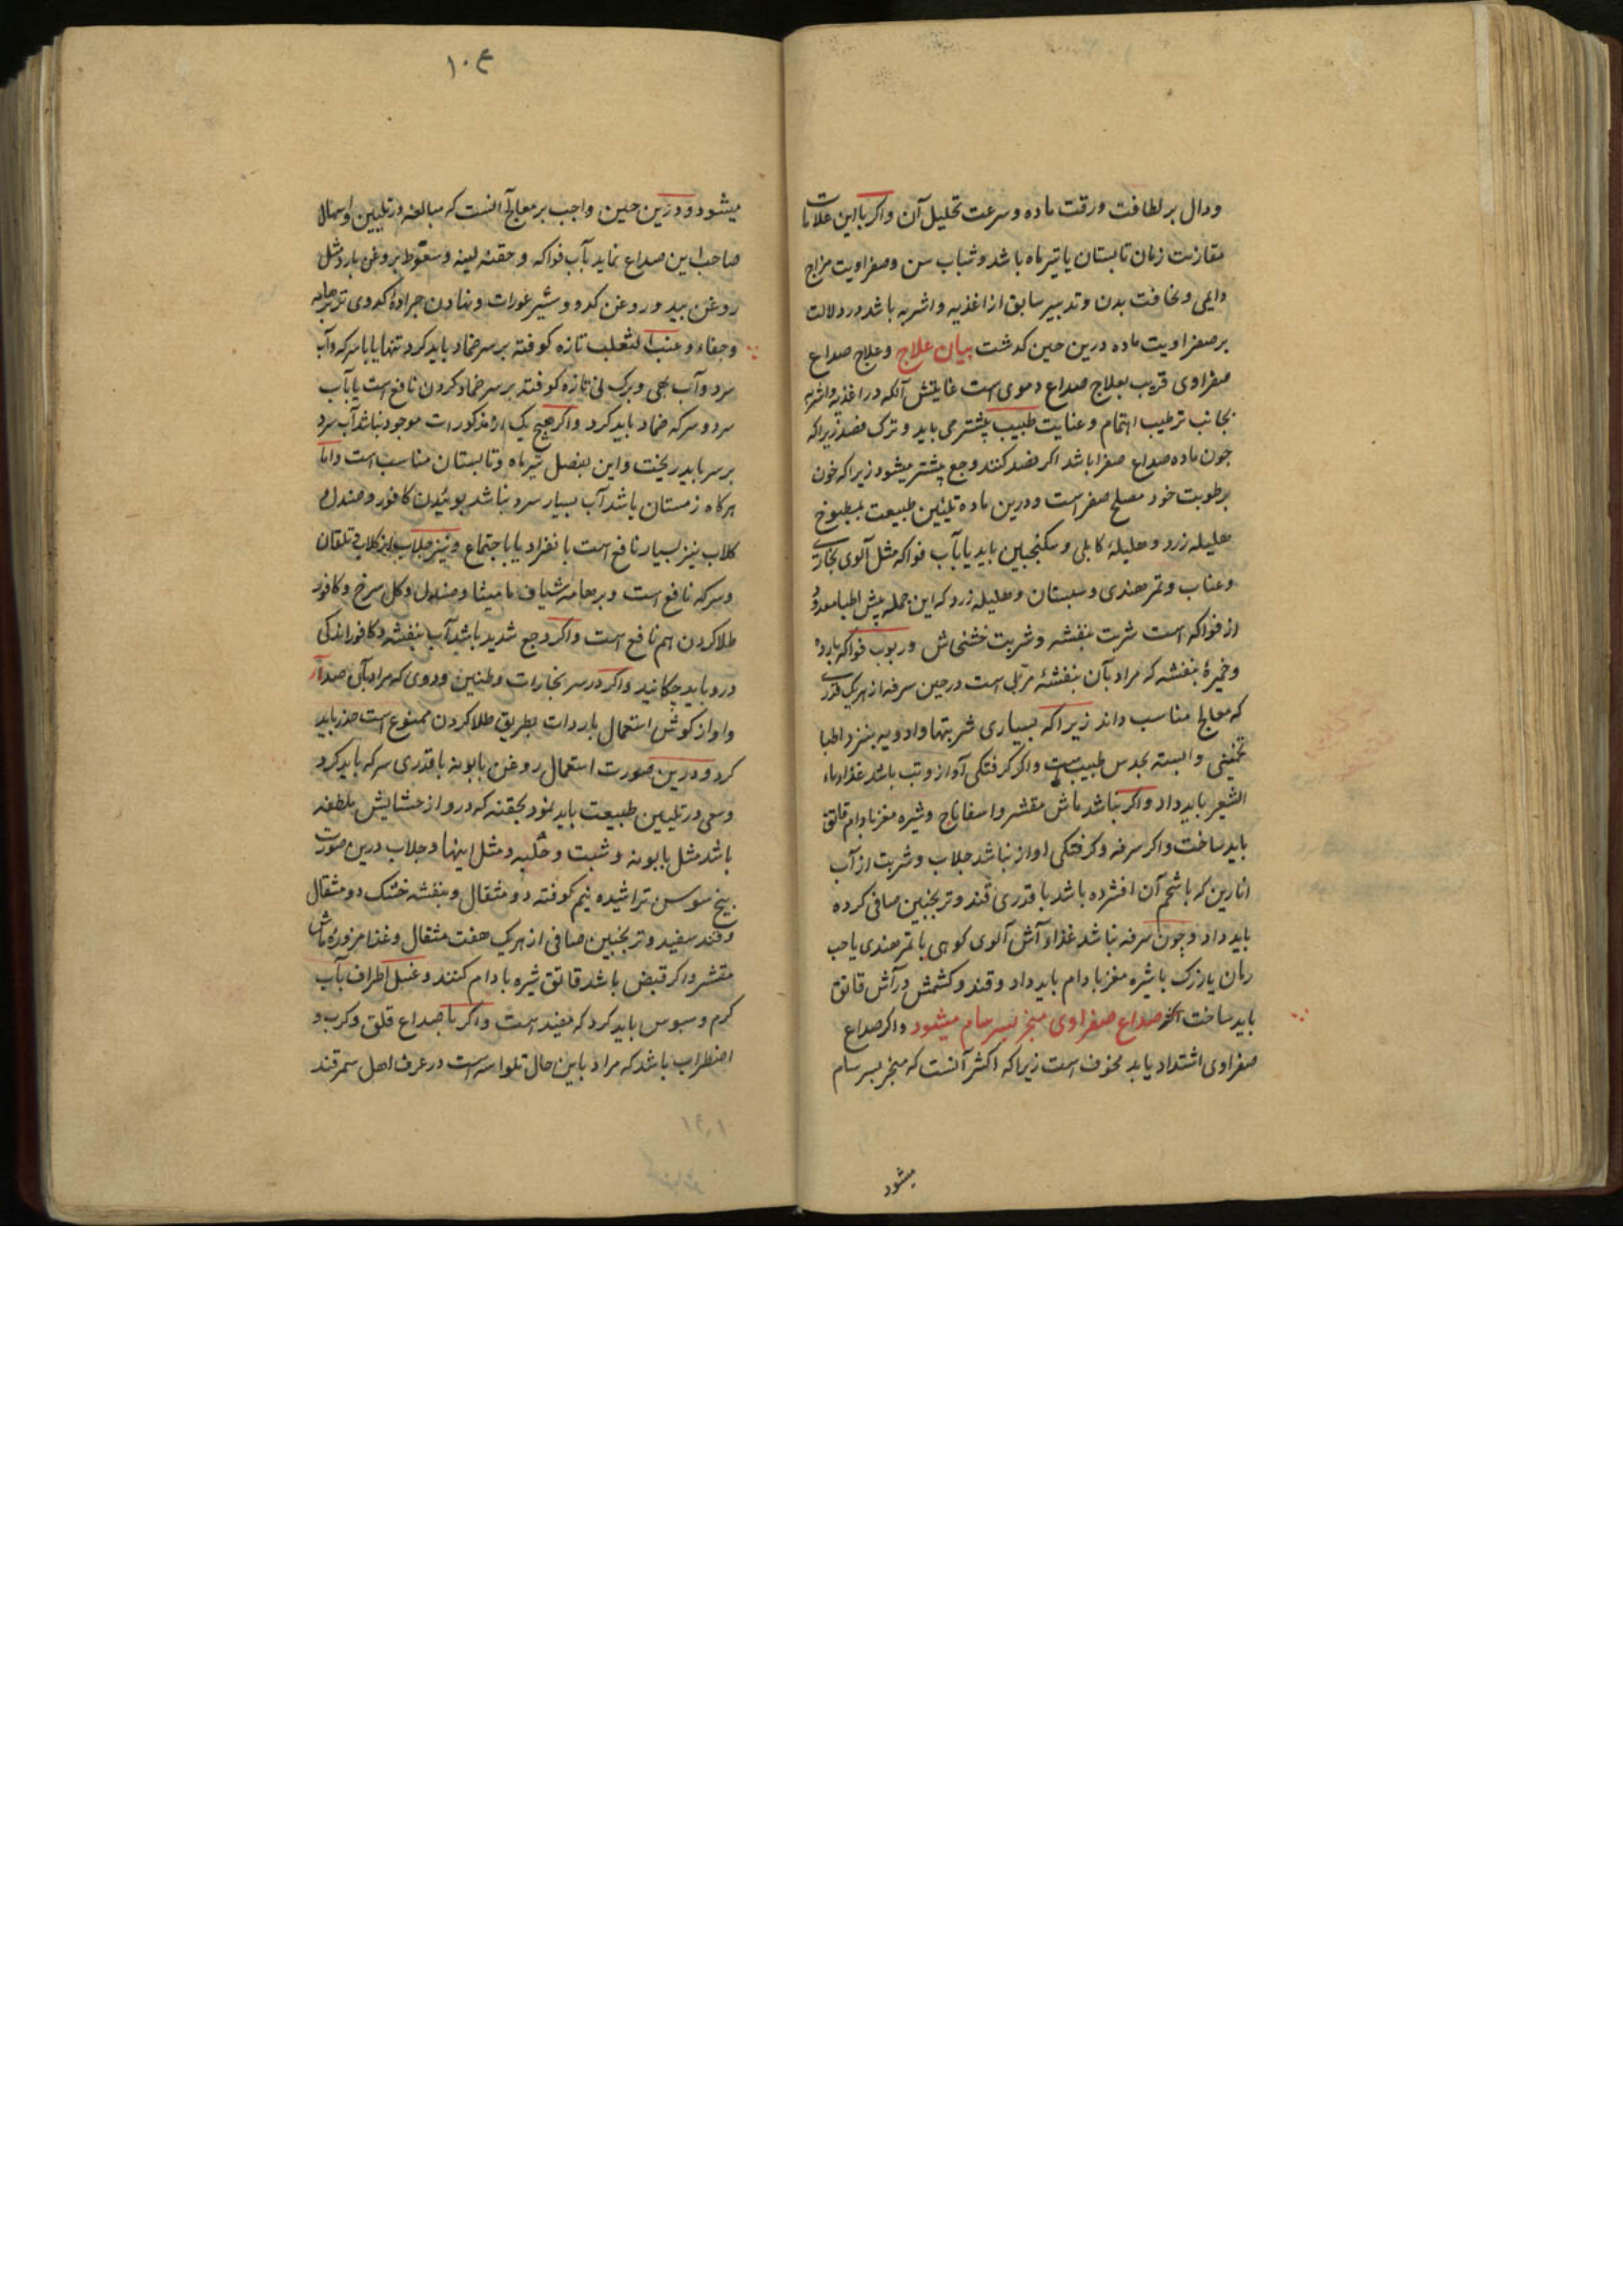 ودال بر لطافت ورقت ماده و سرعت تحلیل آن واکر با این علامات
مقارنت زمان تابستان یا تیرماه باشد و شباب سن و صفراویت مزاج
دایمی و نحافت بدن و تدبیر سابق از اغذیه و اشربه باشد در دلالت
بر صفراویت ماده درین حین کدشت بیان علاج و علاج صداع
صفراوی قریب بعلاج صداع دموی است غایتش آنکه در اغذیه و اشربه
بجانب ترطیب اهتمام و عنایت طبیب پیشتر می باید و ترک فصد زیراکه
چون ماده صداع صفرا باشد اکر فصد کنند وجع پیشتر میشود زیراکه خون
برطوبت خود مصلح صفراست و درین ماده تلیین طبیعت بمطبوخ
هلیله زرد و هلیلهٔ کابلی و سکنجبین باید یا بآب فواکه مثل آلوی بخاری
و عناب و تمر هندی و سبستان و هلیله زرد که این جمله پیش اطبا معدود
از فواکه است شربت بنفشه و شربت خشخاش و ربوب فواکه بارده
و خمیرهٔ بنفشه که مراد بآن بنفشهٔ مربی است در حین سرفه از هر یک قدری
که معالج مناسب داند زیراکه بسیاری شربتها و ادویه بنزد اطبا
تخمینی و البسته بحدس طبیب است واکر کرفتکی آواز و تب باشد غذا ماء
الشعیر باید داد واکر نباشد ماش مقشر و اسفاناج و شیره مغز بادام قاتق
باید ساخت واکر سرفه و کرفتکی اواز نباشد جلاب و شربت از آب
انارین که با شحم آن افشرده باشد با قدری قند و ترنجبین صافی کرده
باید داد و چون سرفه نباشد غذا آش آلوی کوهی یا تمر هندی یا حب
رمان یا زرک با شیره مغز بادام باید داد و قند و کشمش در آش قاتق
باید ساخت اکثر صداع صفراوی منجر بسرسام میشود واکر صداع
صفراوی اشتداد یابد مخوف است زیراکه اکثر آنست که منجر بسرسام
میشود
۱۰۴
میشود و درین حین واجب بر معالج آنست که مبالغه در تلیین و اسهال
صاحب این صداع نماید بآب فواکه و حقنه لینه و سعوط بروغن بارد مثل
روغن بید و روغن کدو و شیر عورات و نهادن جرادهٔ کدوی تر بر هامه
و عنب الثعلب تازه کوفته بر سر ضماد باید کرد تنها یا با سرکه و آب
سرد و آب بهی و برک نی تازه کوفته بر سر ضماد کردن نافع است یا بآب
سرد و سرکه ضماد باید کرد واکر هیچ یک از مذکورات موجود نباشد آب سرد
بر سر باید ریخت و این بفصل تیرماه و تابستان مناسب است و اما
هرکاه زمستان باشد آب بسیار سرد نباشد بوئیدن کافور و صندل و
کلاب نیز بسیار نافع است بانفراد یا باجتماع و نیز
و سرکه نافع است و بر هامه شیاف مامیثا و صندل و کل سرخ و کافور
طلا کردن هم نافع است واکر وجع شدید باشد آب بنفشه و کافور اندکی
درو باید چکانید واکر در سر بخارات و طنین و دوی که مراد بآن صداء
و اواز کوش استعمال باردات بطریق طلا کردن ممنوع است حذر باید
کرد و درین صورت استعمال روغن بابونه با قدری سرکه باید کرد
و سعی در تلیین طبیعت باید نمود بحقنه که درو از حشایش ملطفه
باشد مثل بابونه و شبت و حلبه و مثل اینها و جلاب درین صورت
بیخ سوسن تراشیده نیم کوفته دو مثقال و بنفشه خشک دو مثقال
و قند سفید و ترنجبین صافی از هر یک هفت مثقال و غذا مزورهٔ ماش
مقشر واکر قبض باشد قاتق شیره بادام کنند و غسل اطراف بآب
کرم و سبوس باید کرد که مفید است واکر با صداع قلق و کرب و
اضطراب باشد که مراد باین حال تلواسه است در عرف اهل سمرقند